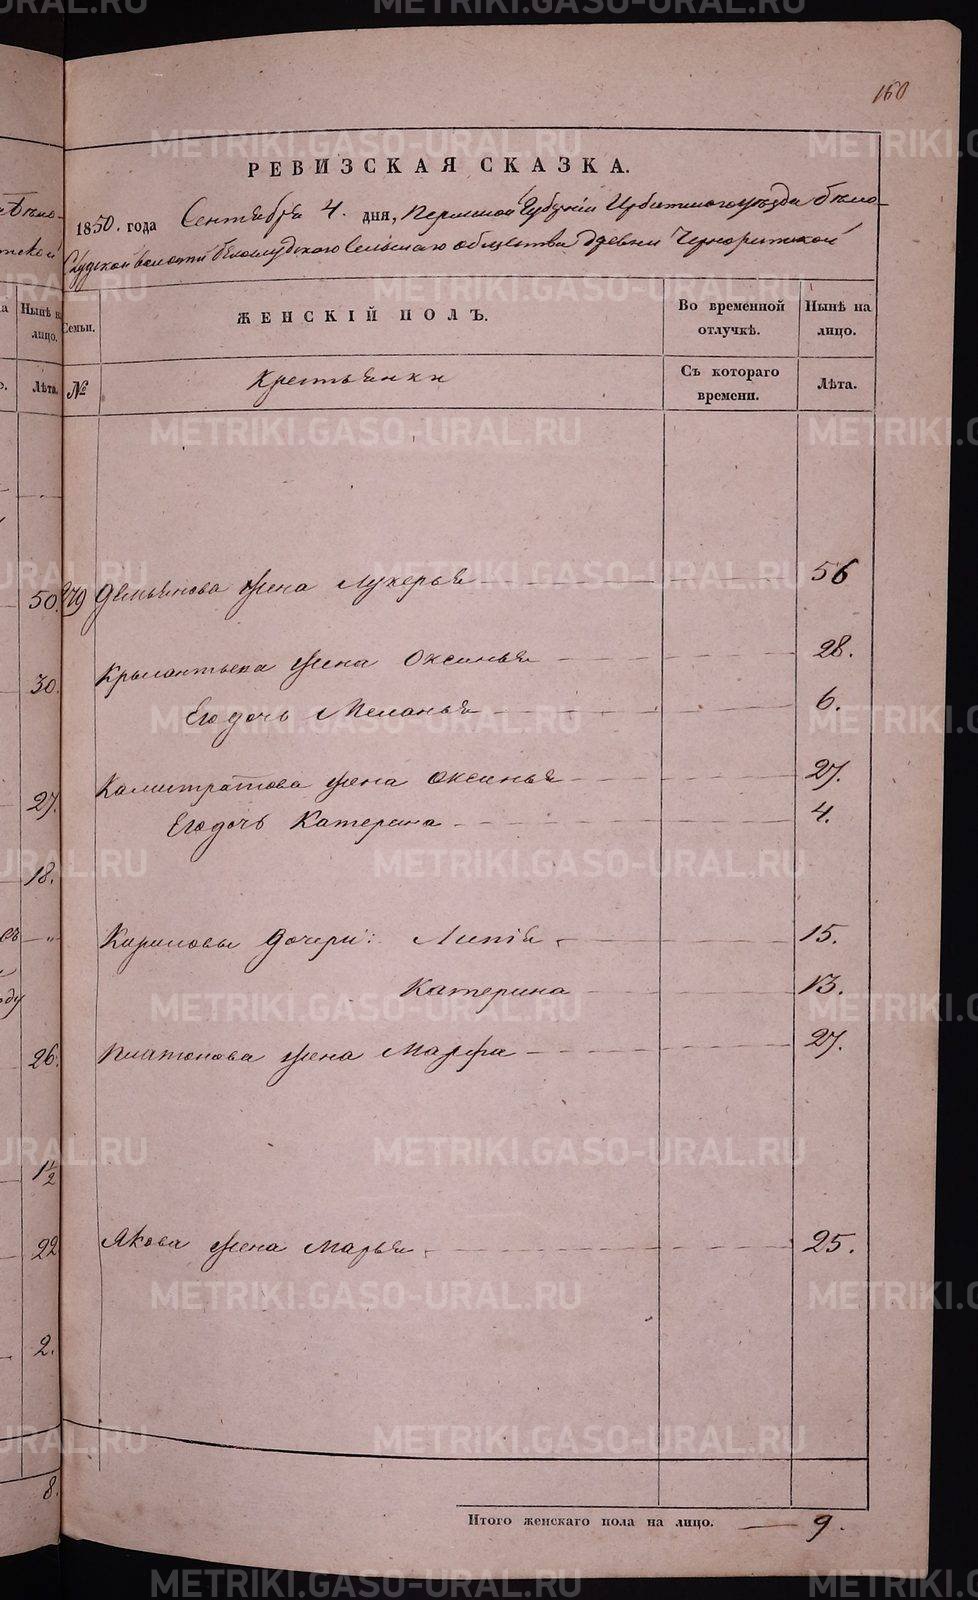 160
РЕВИЗСКАЯ СКАЗКА.
1850. года Сентября 4. дня, Пермской Губернии Ирбитскаго уезда Бело-
слудской волости Белослудскаго сельскаго общества деревни
Семьи.
ЖЕНСКІЙ ПОЛЪ.
Во временной отлучкѣ.
Нынѣ на лицо.
№
Крестьянки
Съ котораго времени.
Лѣта.
Демьянова жена Лукерья 56
жена Оксинья 28.
Его дочь Меланья 6.
Калистратова жена Оксинья 27.
Его дочь Катерина 4.
Кириловы дочери: 15.
Катерина 13.
Платонова жена Марфа 27.
Якова жена Марья 25.
Итого женскаго пола на лицо. 9.
Нынѣ на
лицо.
Лѣта.
50.
30.
27.
18.
26.
1 1/2
22
2.
8.
METRIKI.GASO-URAL.RU